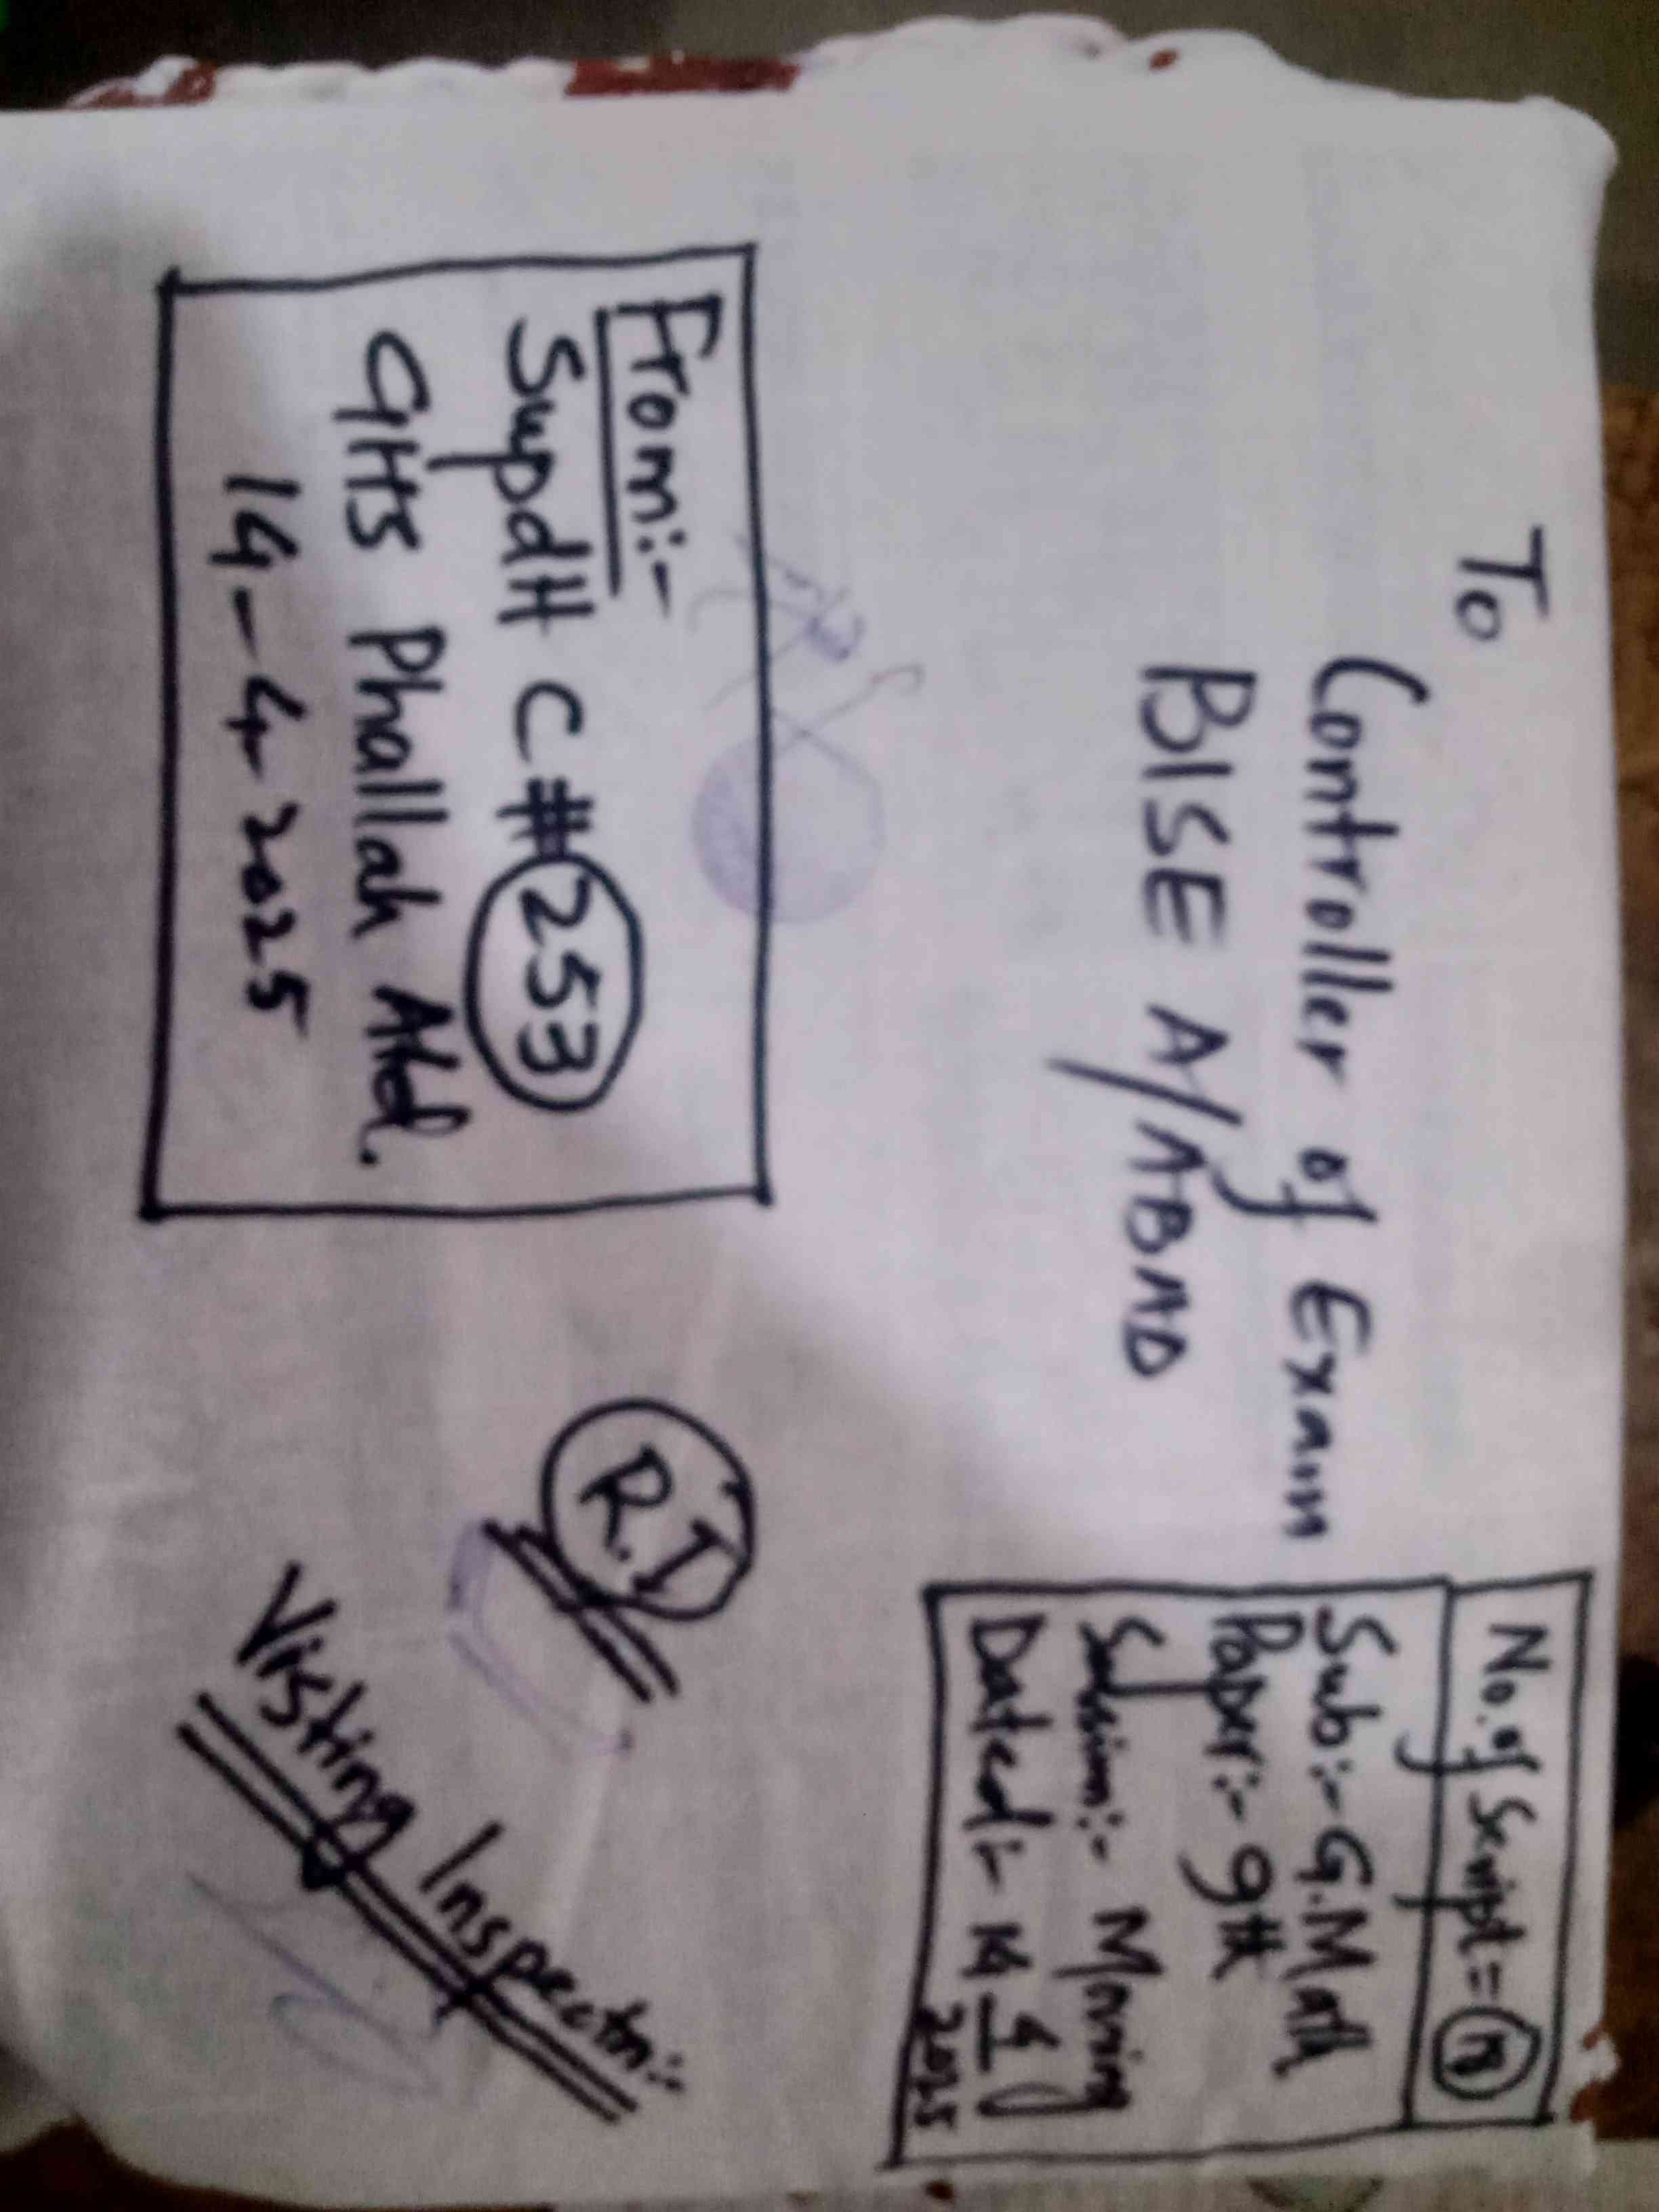 To
Controller of Exam
BISE A/ABAD
No. of Script =
Sub:- G.Math
Paper:- 9th
Session:- Morning
Dated:- 14 4 2025
From:-
Supdtt C # 253
GHS Phallah Atd.
14-4-2025
R.I
Visting Inspector:-